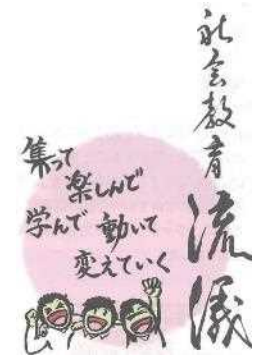 社会教育
流儀
集って
楽しんで
学んで
動いて
変えていく